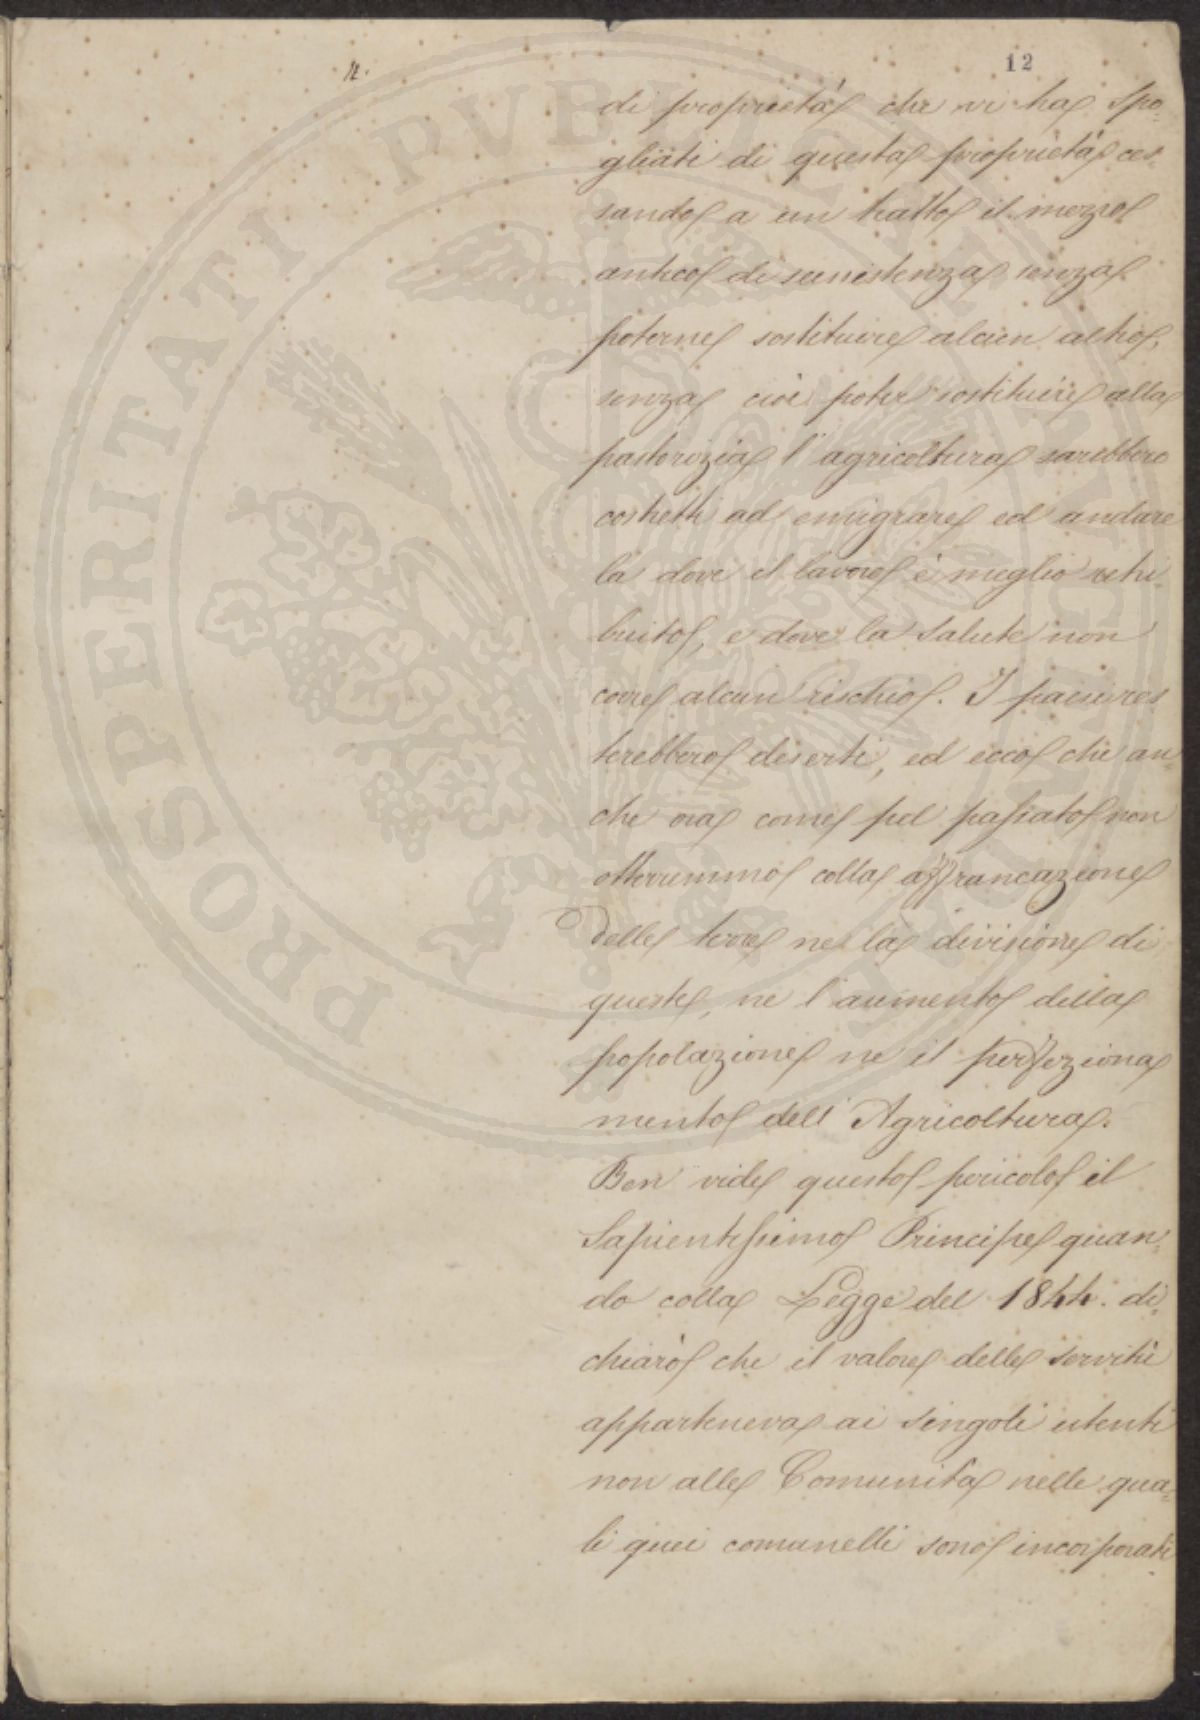 12.
12
di proprietà che vi ha. Spo-
gliati di questa proprietà ces-
sando a un tratto il mezzo
antico di sussistenza, senza
poterne sostituire alcun altro,
senza cioè poter sostituire alla
pastorizia l'agricoltura sarebbero
costretti ad emigrare ed andare
là dove il lavoro è meglio retri-
buito, e dove la salute non
corre alcun rischio. I paesi res-
terebbero deserti, ed ecco che an-
che ora come pel passato non
otterremmo colla affrancazione
delle terre ne la divisione di
queste, ne l'aumento della
popolazione ne il perfeziona
mento dell'Agricoltura.
Ben vide questo pericolo il
Sapientissimo Principe quan-
do colla Legge del 1844. di-
chiarò che il valore delle servitù
apparteneva ai singoli utenti
non alle Comunità nelle qua-
li quei comunelli sono incorporati
PROSPERITATI PVBLICAE